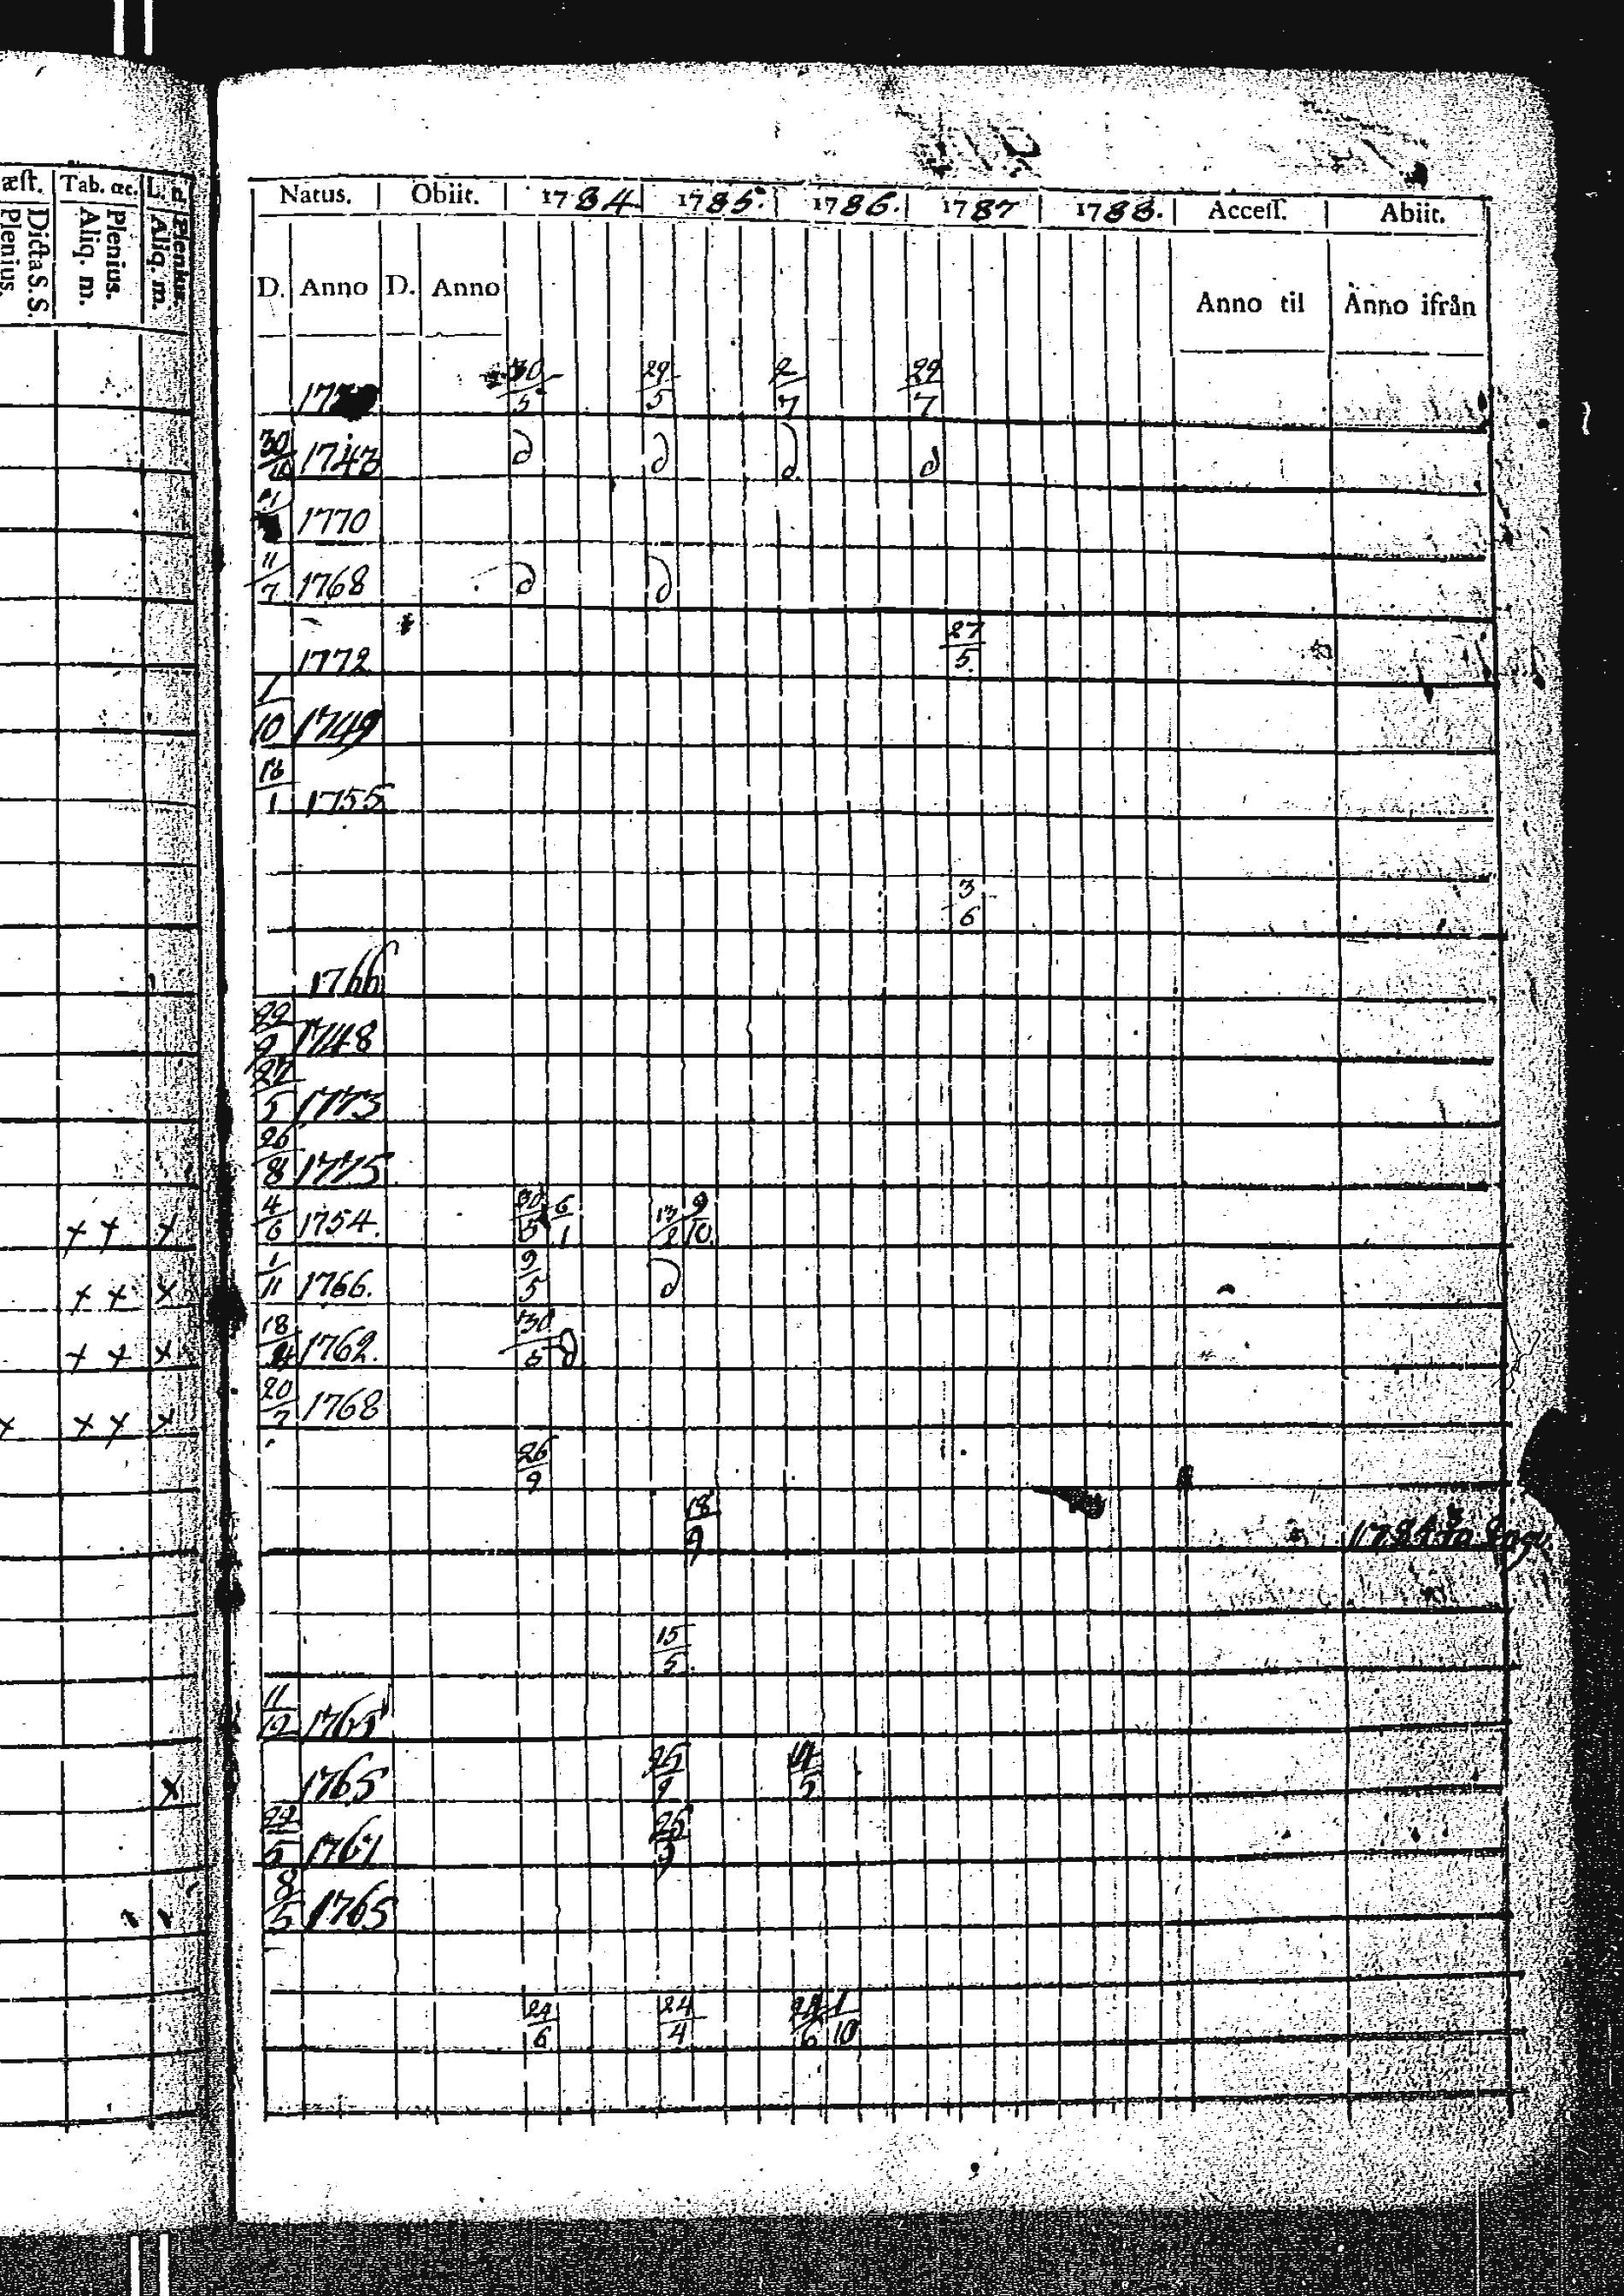 æſt. Tab. œc. L. d
Dicta S. S. Plenius. Plenius. Aliq. m. Plenius. Aliq. m.
Natus. Obiit. 1784. 1785. 1786. 1787 1788. Acceſſ. Abiit.
D. Anno D. Anno Anno til Anno ifrån
30/5 29/5 2/7 29/7
30/10 1743 d d d d
1770
11/7 1768 d d
1772 27/5
1/10 1749
18/1 1755
3/6
1766
29/9 1748
27/5 1773
26/8 1775
x x x 4/6 1754. 30/5 6/1 13/2 9/10
x x x 1/11 1766. 9/5 d
x x x 18/ 1762. 30/5 d
x x x x 20/7 1768
26/9
18/9 1784
15/5
11/12 1765
x 1765 25/9 /5
22/5 1761 25/9
8/5 1765
29/6 24/4 /6 1/10